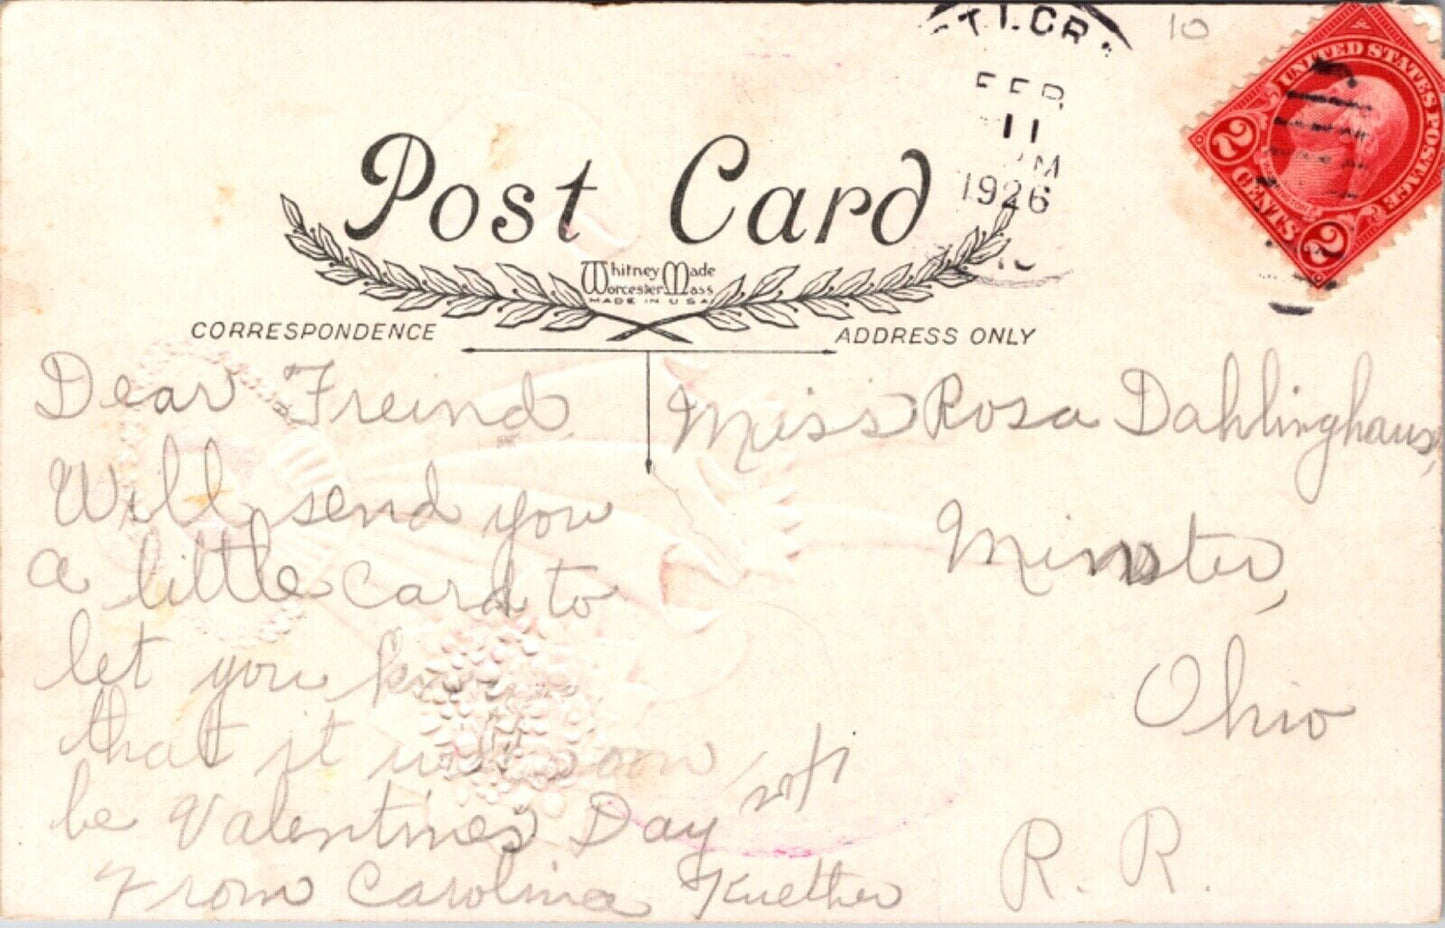 10
FEB
11
M
1926
UNITED STATES POSTAGE
2 CENTS 2
Post Card
Whitney Made
Worcester Mass
MADE IN USA
CORRESPONDENCE
ADDRESS ONLY
Dear Freind
Will send you
a little card to
let you know
that it will soon
be Valentines Day
From Carolina Kuether
Miss Rosa Dahlinghaus,
Minster,
Ohio
R. R.